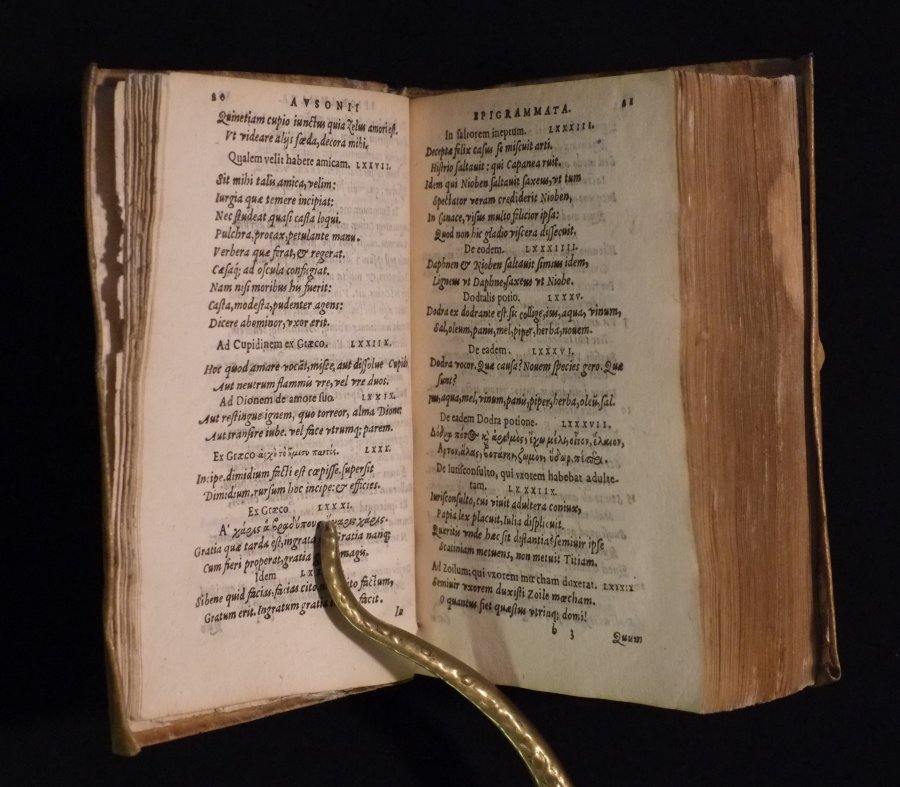 20
AVSONII
Quinetiam cupio iunctus quia Zelus amori est.
Vt videare alijs fœda, decora mihi.
Qualem velit habere amicam. LXXVII.
Sit mihi talis amica, velim:
Iurgia quæ temere incipiat:
Nec studeat quasi casta loqui.
Pulchra, procax, petulante manu.
Verbera quæ ferat, & regerat.
Cæsaq; ad oscula confugiat.
Nam nisi moribus his fuerit:
Casta, modesta, pudenter agens:
Dicere abominor, vxor erit.
Ad Cupidinem ex Græco. LXXIIX.
Hoc quod amare vocāt, misce, aut dissolue Cupido
Aut neutrum flammis vre, vel vre duos.
Ad Dionem de amore suo. LXXIX.
Aut restingue ignem, quo torreor, alma Dione:
Aut transire iube. vel face vtrumq; parem.
Ex Græco LXXX.
Incipe. dimidium facti est cœpisse. supersit
Dimidium. rursum hoc incipe: & efficies.
Ex Græco. LXXXI.
Gratia quæ tarda est, ingrata Gratia nanq;
Cum fieri properat, gratia magis.
Idem
Si bene quid facias, facias cito cito factum,
Gratum erit. Ingratum gratia facit.
In
EPIGRAMMATA. 21
In saltorem ineptum. LXXXIII.
Deceptæ felix casus se miscuit arti.
Histrio saltauit: qui Capanea ruit.
Idem qui Nioben saltauit saxeus, vt tum
Spectator veram crediderit Nioben,
In Canace, visus multo filicior ipsa:
Quod non hic gladio viscera dissecuit.
De eodem. LXXXIIII.
Daphnen & Nioben saltauit simius idem,
Ligneus vt Daphne, saxeus vt Niobe.
Dodralis potio. LXXXV.
Dodra ex dodrante est. sic collige, ius, aqua, vinum,
Sal, oleum, panis, mel, piper, herba, nouem.
De eadem. LXXXVI.
Dodra vocor. Quæ causa? Nouem species gero. Quæ
sunt?
Ius, aqua, mel, vinum, panis, piper, herba, oleū. sal.
De eadem Dodra potione. LXXXVII.
De Iurisconsulto, qui vxorem habebat adulte-
ram. LXXXIIX.
Iurisconsulto, cui viuit adultera coniux,
Papia lex placuit, Iulia displicuit.
Quæritis vnde hæc sit distantia? semiuir ipse
Scatiniam metuens, non metuit Titiam.
Ad Zoilum; qui vxorem mœcham duxerat. LXXXIX
Semiuir vxorem duxisti Zoile mœcham.
O quantus fiet quæstus vtrinq; domi!
b 3
Quum